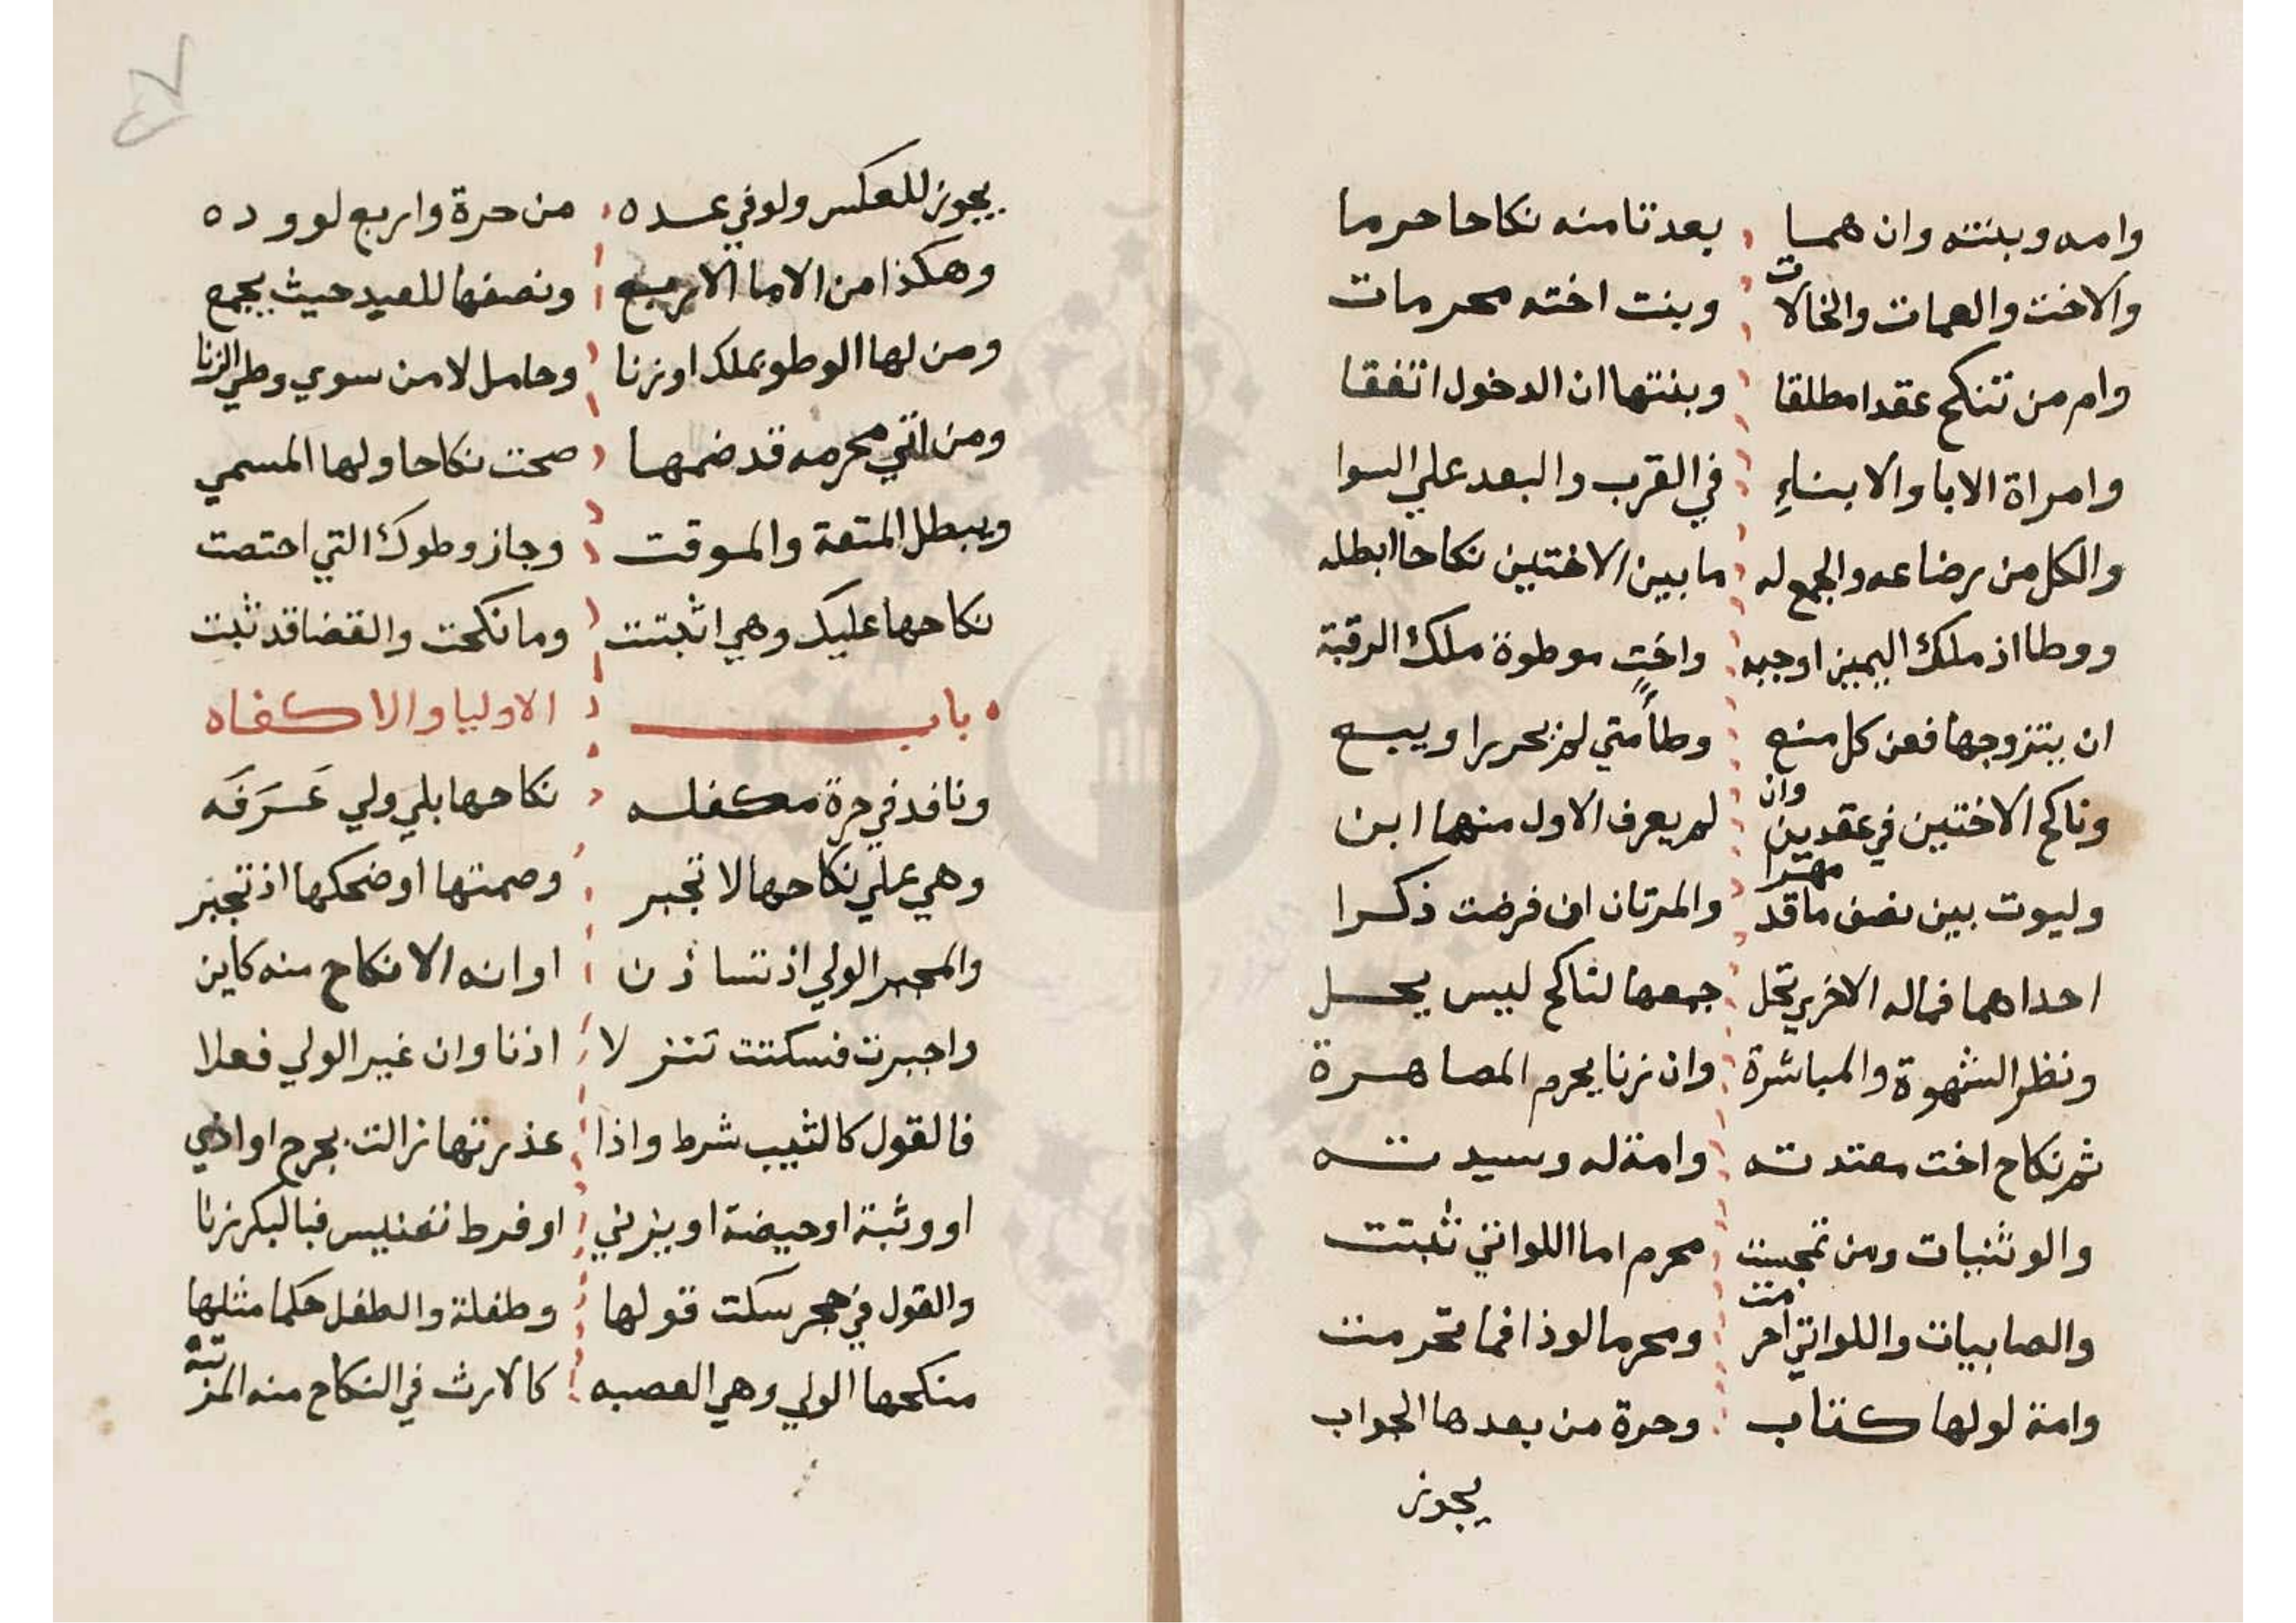 وامه وبنته وان همسا بعدتا منه نكاحا حرما
والاخت والعمات والخالات وبنت اخته محرمات
وام من تنكح عقدا مطلقا وبنتها ان الدخول اتفقا
وامراة الابا والابناءِ في القرب والبعد علي السوا
والكل من رضاعه والجمع له ما بين الاختين نكاحا ابطله
ووطا اذ ملك اليمين اوجبه واختٍ موطوة ملك الرقبة
ان يتزوجها فعن كل منع وطأ متي لم تحريرا ويبع
وناكح الاختين في عقدين وان لم يعرف الاول منهما ابن
وليوت بين نصف ما قد مهرا والمرتان ان فرضت ذكرا
احداهما فماله الاخري تحل جمعها لناكح ليس يحل
ونظر الشهوة والمباشرة وان زنا يحرم المصاهرة
ثم نكاح اخت معتدته وامة له وسيدته
والوثنيات ومن تمجست محرم اما اللواتي ثبتت
والصابيات واللواتي احرمت ومحرما لوذا فما تحرمت
وامة لولها كتاب وحرة من بعدها الجواب
يجوز
يجوز للعكس ولو في عده من حرة واربع لووده
وهكذا من الاما الاربع ونصفها للعبد حيث يجمع
ومن لها الوطو بملك او زنا وحامل لا من سوي وطي الزنا
ومن اتي محرمه قد ضمها صحت نكاحا ولها المسمي
ويبطل المتعة والموقت وجاز وطوك التي احتصت
نكاحها عليك وهي اثبتت وما نكحت والقضا قد ثبت
باب الاوليا والاكفاه
ونافد في حرة مكفله نكاحها بلي ولي عَرَفَه
وهي علي نكاحها لا تجبر وصمتها او ضحكها اذ تجبر
والمجبر الولي اذ تساذن او انه الانكاح منه كاين
واجبرت فسكتت تنزلا اذنا وان غير الولي فعلا
فالقول كالثيب شرط واذا عذرتها زالت بجرح او اذي
او وثبة او حيضة او بزني او فرط تعنيس فبالبكر زنا
والقول في حجر سكت قولها وطفلة والطفل حكما مثلها
منكحها الولي وهي العصبه كالارث في النكاح منه المرتبه